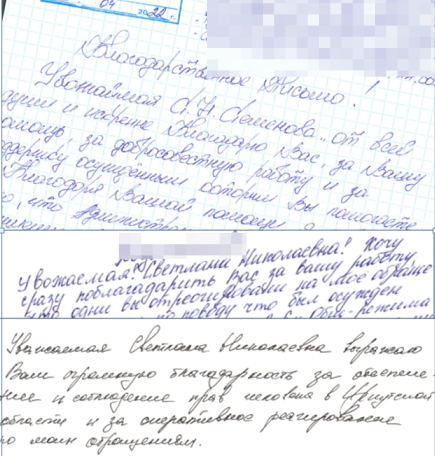 04 2022 г.
Благодарственное Письмо!
Уважаемая С.Н. Семенова, от всей
души и искренне Благодарю Вас, за Вашу
помощь, за добросовестную работу и за
поддержку осужденным которым Вы помогаете
Благодаря Вашей помощи
что Администрац
Уважаемая! Светлана Николаевна! Хочу
сразу поблагодарить Вас за вашу работу
что одни вы отреагировали на мое обраще
по поводу что был осужден
режима
Уважаемая Светлана Николаевна выражаю
Вам огромную благодарность за обеспече-
ние и соблюдение прав человека в Иркутской
области и за оперативное реагирование
по моим обращениям.